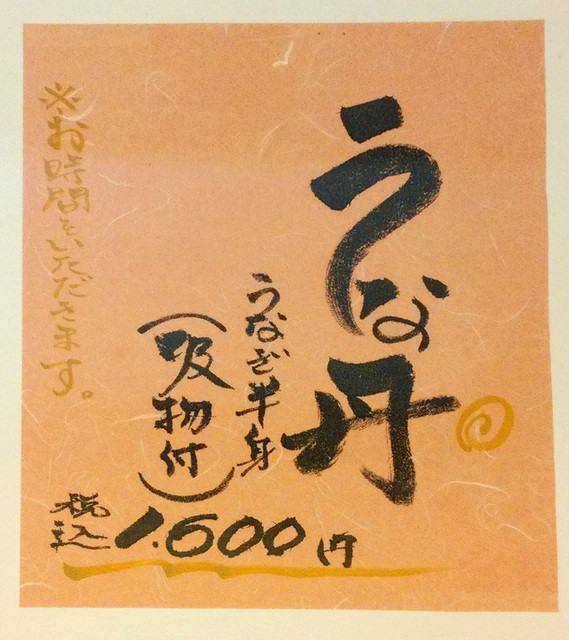 うな丹
うなぎ半身
（吸物付）
税込1.600円
※お時間をいただきます。